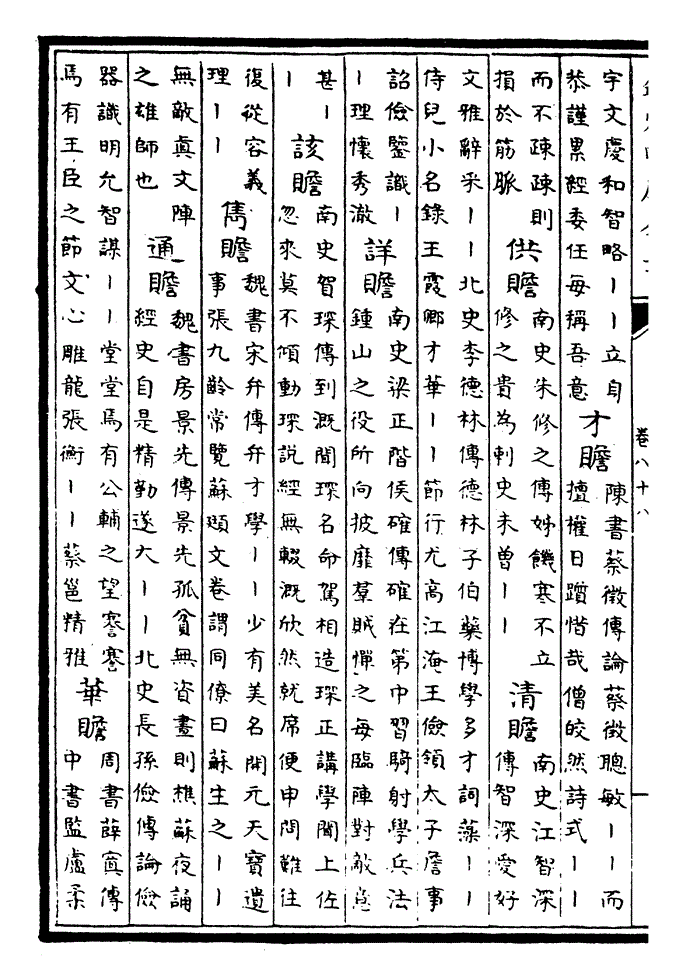 宇文慶和智略丨丨立自
恭謹累經委任每稱吾意
才贍
陳書蔡徵傳論蔡徵聰敏丨丨而
擅權日躓惜哉僧皎然詩式丨丨
而不疎疎則
損於筋脈
供贍
南史朱修之傳姊饑寒不立
修之貴為刺史未曾丨丨
清贍
南史江智深
傳智深愛好
文雅辭采丨丨北史李德林傳德林子伯藥博學多才詞藻丨丨
侍兒小名錄王霞卿才華丨丨節行尤高江淹王儉領太子詹事
詔儉鑒識丨
丨理懷秀澈
詳贍
南史梁正階侯確傳確在第中習騎射學兵法
鍾山之役所向披靡羣賊憚之每臨陣對敵意
甚丨
丨
該贍
南史賀琛傳到溉聞琛名命駕相造琛正講學闔上佐
忽來莫不傾動琛說經無輟溉欣然就席便申問難往
復從容義
理丨丨
雋贍
魏書宋弁傳弁才學丨丨少有美名開元天寶遺
事張九齡常覽蘇頲文卷謂同僚曰蘇生之丨丨
無敵真文陣
之雄師也
通贍
魏書房景先傳景先孤貧無資晝則樵蘇夜誦
經史自是精勤遂大丨丨北史長孫儉傳論儉
器識明允智謀丨丨堂堂焉有公輔之望謇謇
焉有王臣之節文心雕龍張衡丨丨蔡邕精雅
華贍
周書薛寘傳
中書監盧柔
卷八十八
一